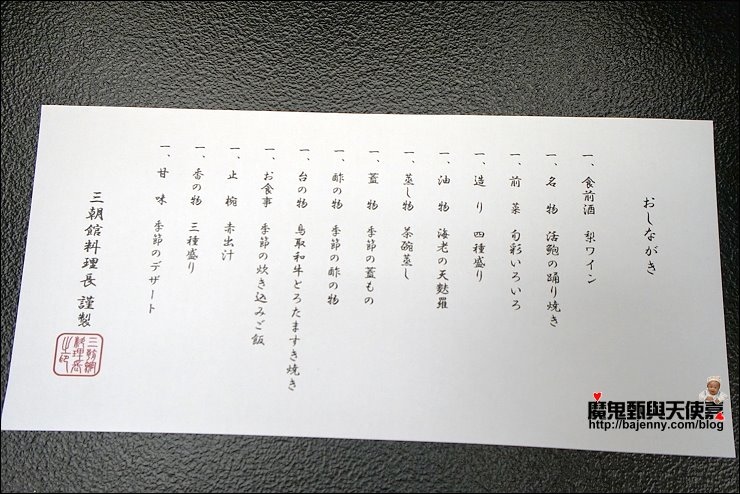 おしながき
一、食前酒 梨ワイン
一、名 物 活鮑の踊り焼き
一、前 菜 旬彩いろいろ
一、造 り 四種盛り
一、油 物 海老の天麩羅
一、蒸し物 茶碗蒸し
一、蓋 物 季節の蓋もの
一、酢の物 季節の酢の物
一、台の物 鳥取和牛とろたますき焼き
一、お食事 季節の炊き込みご飯
一、止 椀 赤出汁
一、香の物 三種盛り
一、甘 味 季節のデザート
三朝館料理長 謹製
三朝館
料理長
之印
魔鬼甄與天使嘉
http://bajenny.com/blog